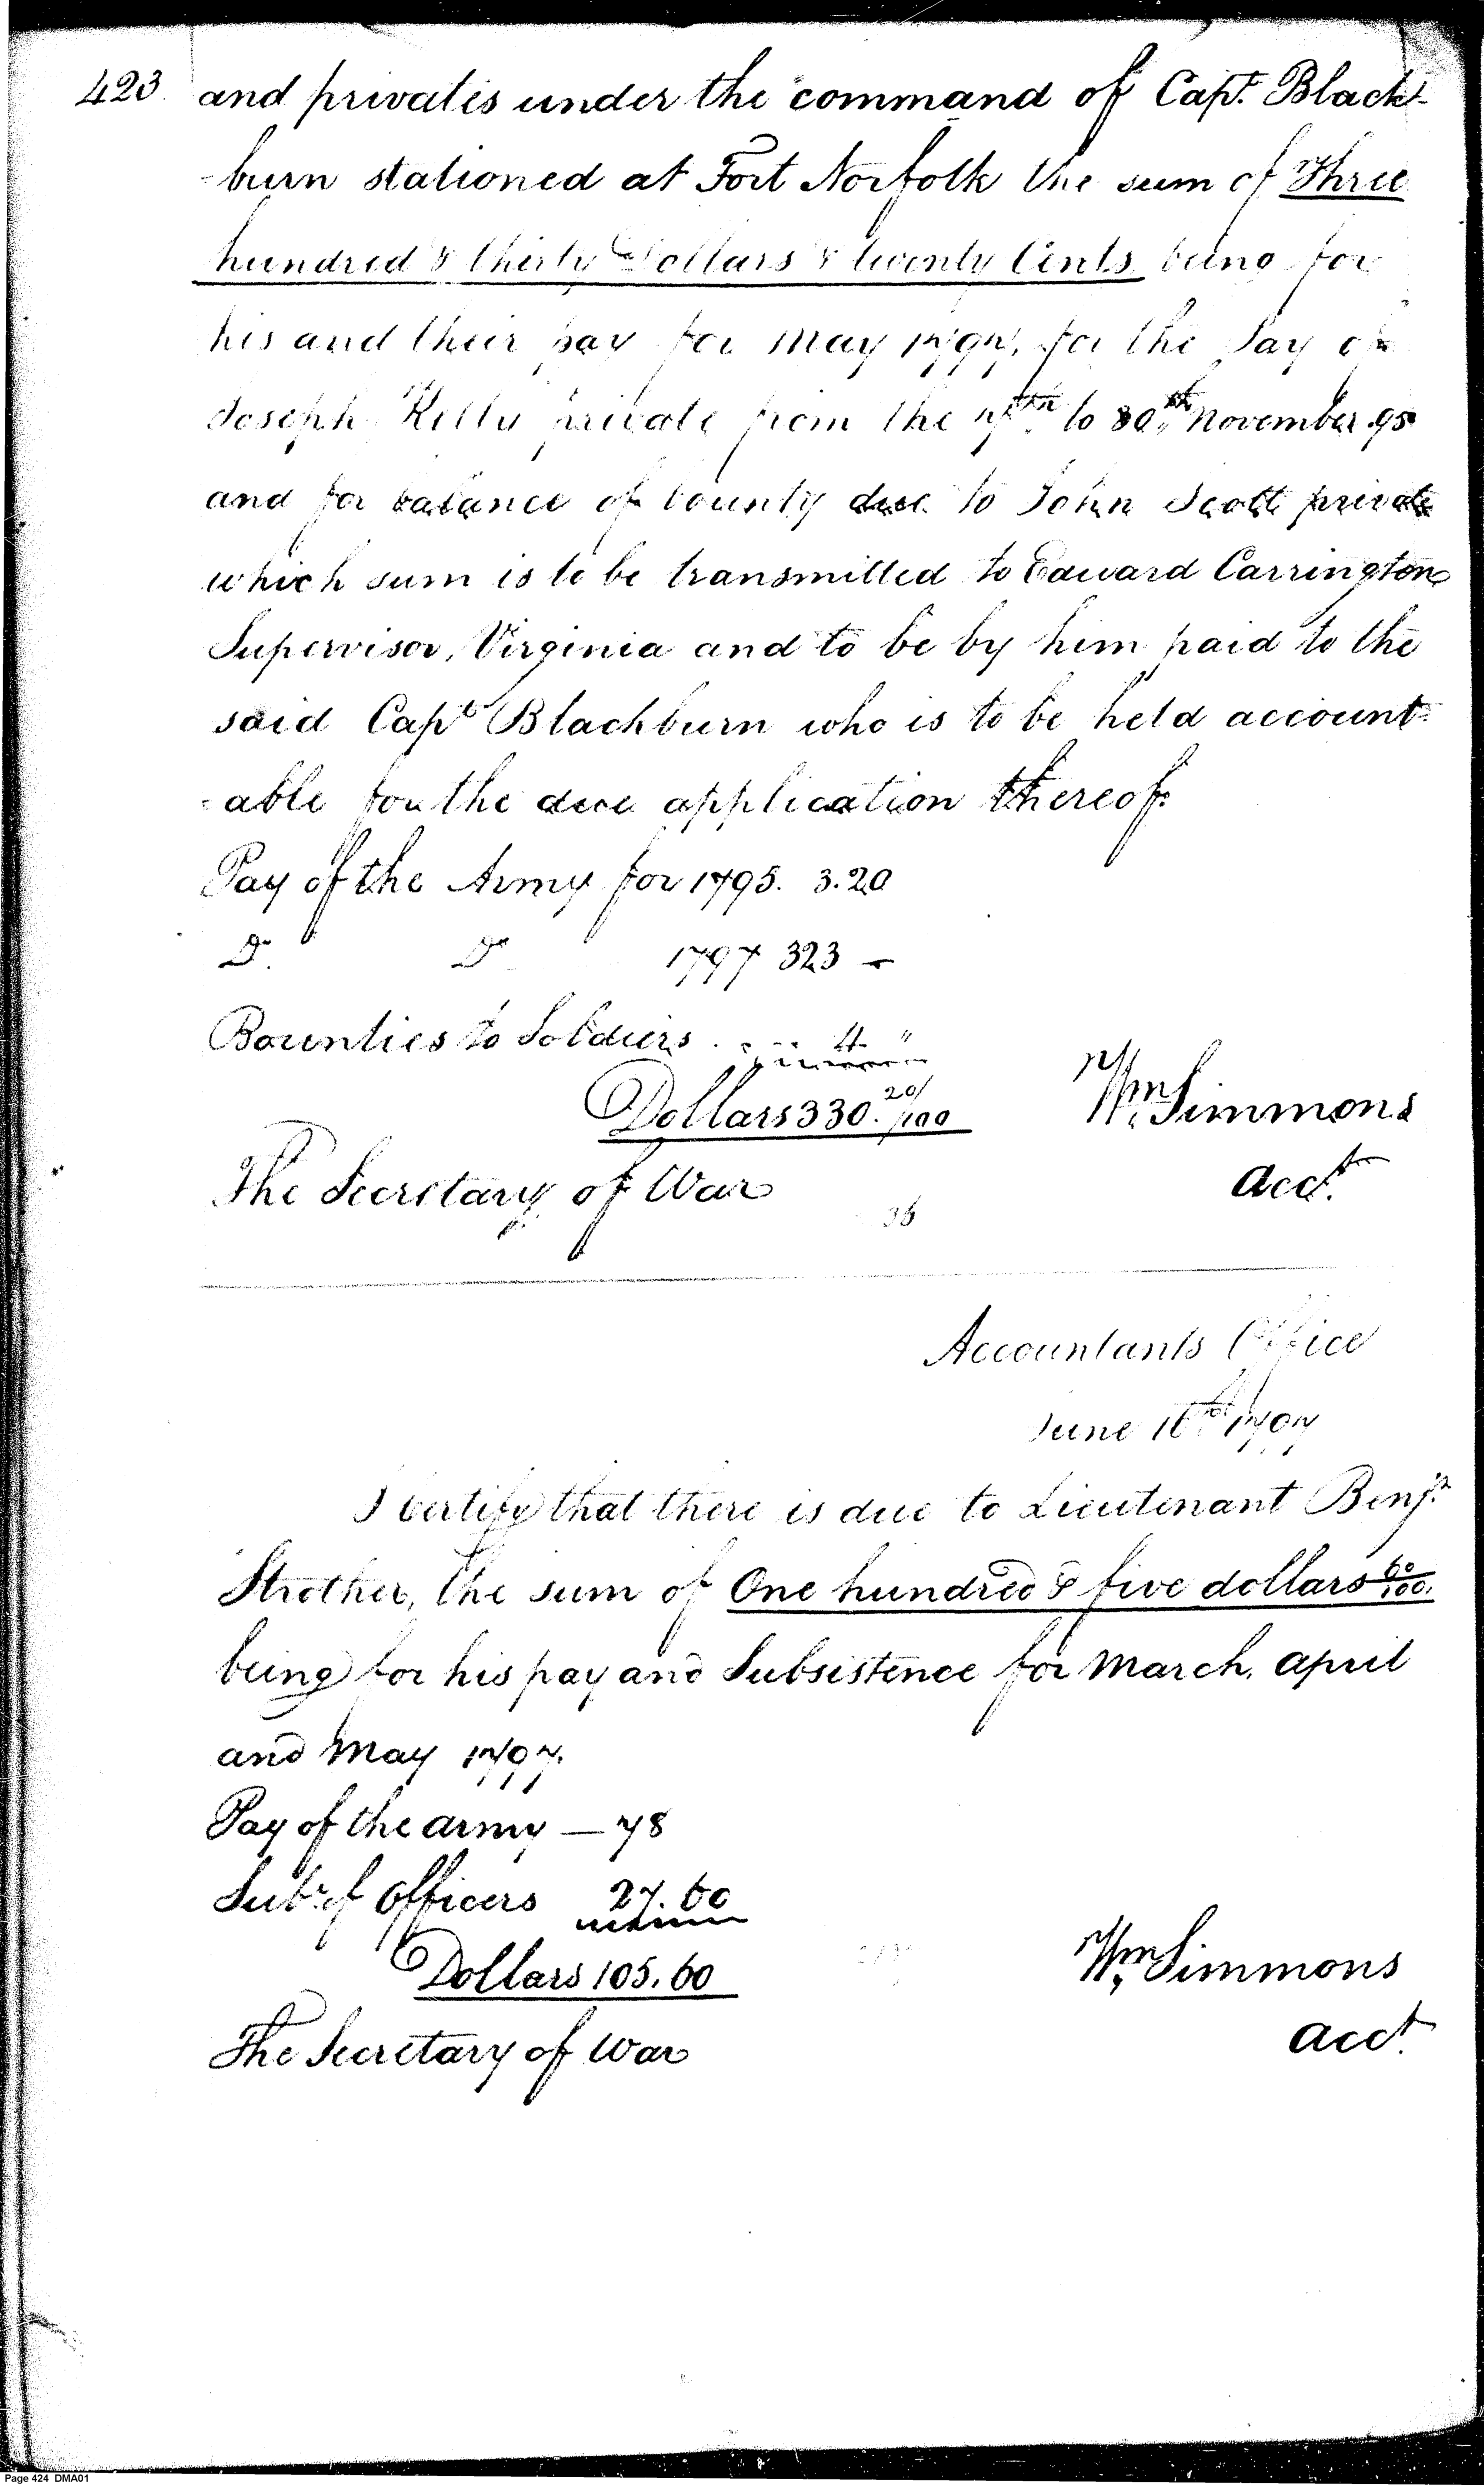 423 and privates under the command of Capt. Black-
-burn stationed at Fort Norfolk the sum of Three
hundred & thirty Dollars & twenty Cents being for
his and their pay for May 1797, for the Pay of
Joseph Kelly private from the 7th to 30th November 95
and for balance of bounty due to John Scott private
which sum is to be transmitted to Edward Carrington
Supervisor, Virginia and to be by him paid to the
said Capt Blackburn who is to be held account-
-able for the due application thereof.
Pay of the Army for 1795. 3.20
Do. Do 1797 323 —
Bounties to Soldiers . . . . 4 "
Dollars 330. 20/100
Wm Simmons
The Secretary of War
acct.
36
Accountants Office
June 16th 1797
I certify that there is due to Lieutenant Benjn
Strother, the sum of One hundred & five dollars 60/100.
being for his pay and Subsistence for March, april
and May 1797.
Pay of the army — 78
Subs. of Officers 27.60
Dollars 105.60
Wm Simmons
acct.
The Secretary of War
Page 424 DMA01